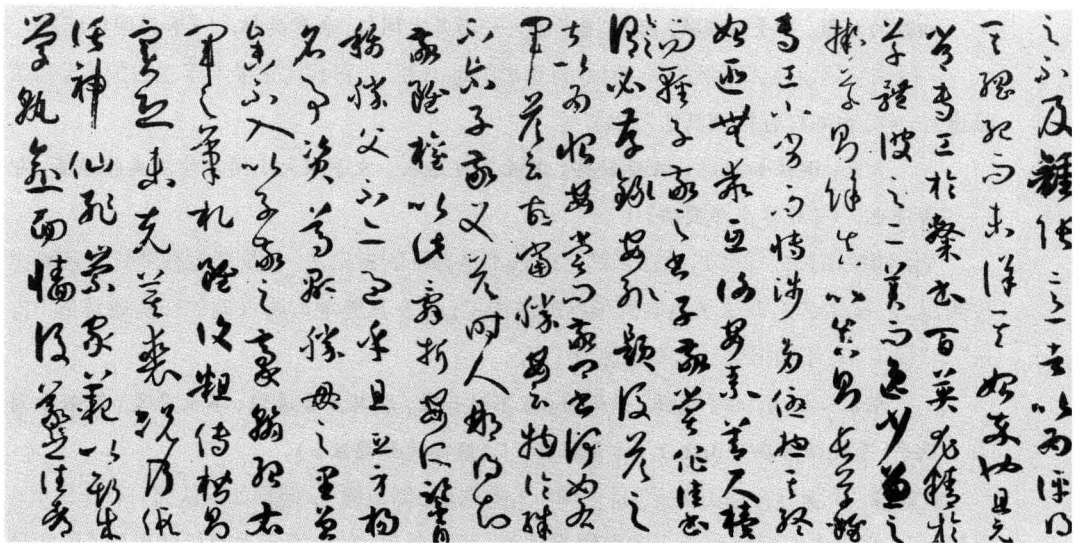 之不及鍾張意者以為評得
其綱紀而未詳其始卒也且元
常專工於隸書百英尤精於
草體彼之二美而逸少兼之
擬草則餘真比真則長草雖
專工小劣而博涉多優揔其終
始匪無乖互謝安素善尺牘
而輕子敬之書子敬嘗作佳書
與之謂必存錄安輒題後答之
甚以為恨安嘗問敬卿書何如右
軍答云故當勝安云物論殊
不尒子敬又答時人那得知
敬雖權以此辭折安所鑒自
稱勝父不亦過乎且立身揚
名事資尊顯勝母之里曾
參不入以子敬之豪翰紹右
軍之筆札雖復粗傳楷則
實恐未克箕裘況乃假
託神仙恥崇家範以斯成
學孰愈面牆後羲之往都